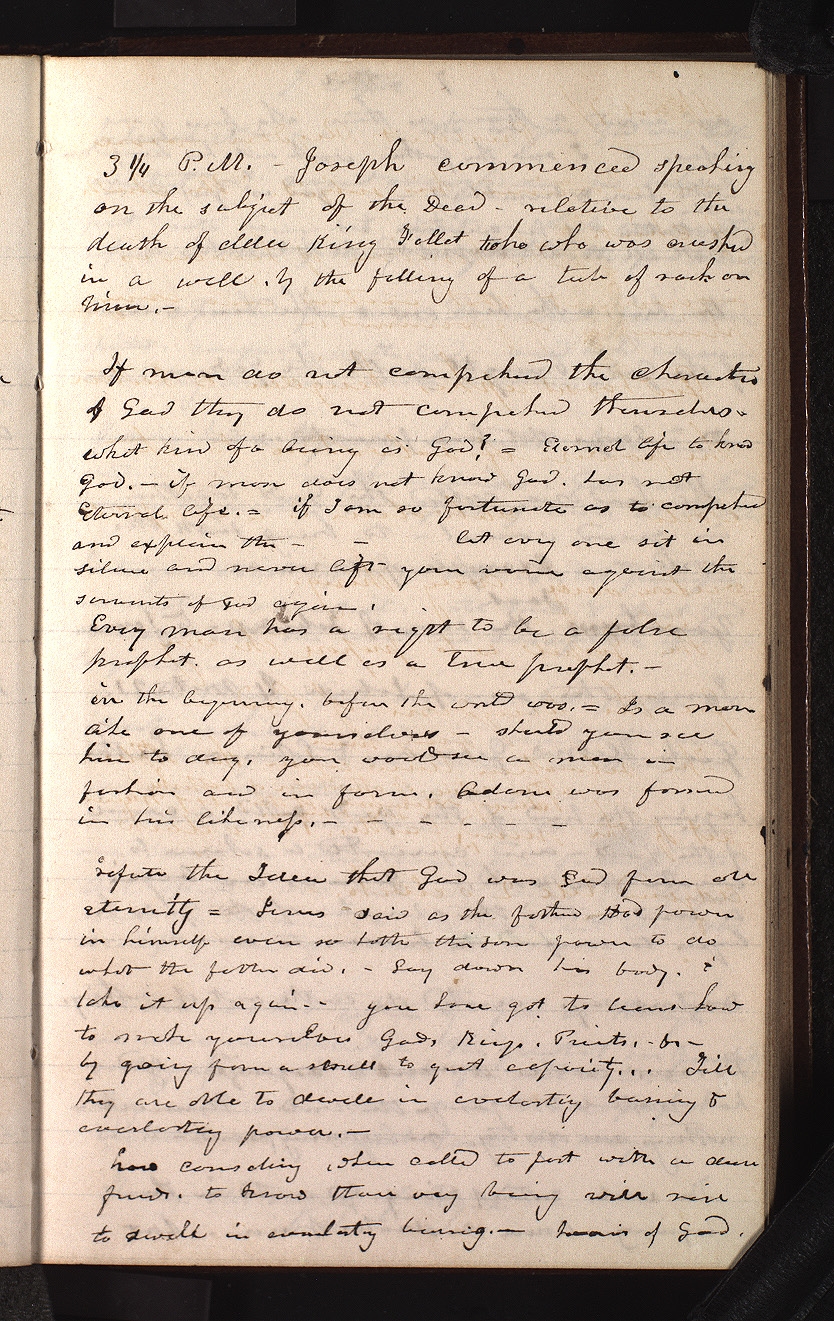 3 1/4 P.M. - Joseph commenced speaking
on the subject of the Dead - relative to the
death of elder King Follet who was crushed
in a well. by the falling of a tub of rock on
him. -
If men do not comprehend the character
of God they do not comprehend themselves. -
what kind of a being is God? = Eternal life to know
god. - if man does not know God. has not
Eternal life. = if I am so fortunate as to comprehend
and explain the - - let evry one sit in
silence and never lift your voice against the
servants of God again.
Every man has a right to be a false
prophet. as well as a true prophet. -
in the beginning. before the world was. = Is a man
like one of yourselves - should you see
him to day. you would see a man in
fashion and in form. Adam was formed
in his likeness. - - - - - -
refute the Idea that God was God from all
eternity = Jesus said as the father Had power
in himself even so hath the son power to do
what the father did. - Lay down his body. &
take it up again. - you have got to learn how
to make yourselves Gods, Kings. Priests. - &c -
by going from a small to great capacity... Till
they are able to dwell in everlasting burning &
everlasting power. -
how consoling when called to part with a dear
friend. to know their very being will rise
to dwell in everlasting burnig. - heirs of God.